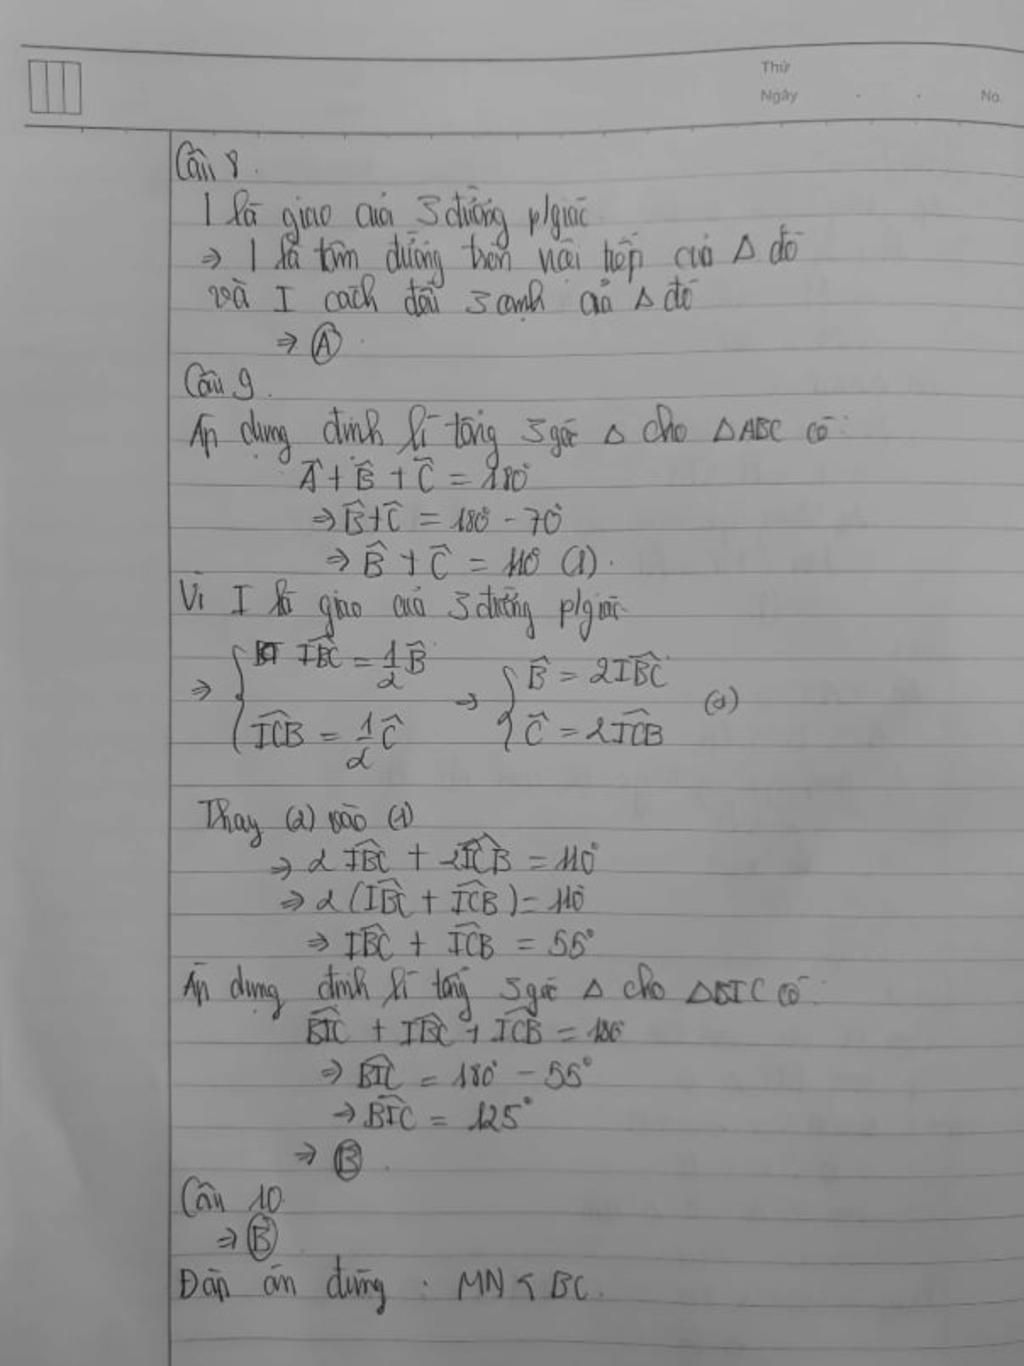 Thứ
Ngày . . No.
Câu 8.
I là giao của 3 đường p/giác
⇒ I là tâm đường tròn nội tiếp của Δ đó
và I cách đều 3 cạnh của Δ đó
⇒ Ⓐ.
Câu 9.
Áp dụng định lí tổng 3 góc Δ cho ΔABC có:
Â + B̂ + Ĉ = 180°
⇒ B̂ + Ĉ = 180° - 70°
⇒ B̂ + Ĉ = 110° (1).
Vì I là giao của 3 đường p/giác
⇒ { IBC^ = 1/2 B̂ → { B̂ = 2IBC^ (2)
ICB^ = 1/2 Ĉ Ĉ = 2ICB^
Thay (2) vào (1)
⇒ 2 IBC^ + 2ICB^ = 110°
⇒ 2 (IBC^ + ICB^) = 110°
⇒ IBC^ + ICB^ = 55°
Áp dụng định lí tổng 3 góc Δ cho ΔBIC có:
BIC^ + IBC^ + ICB^ = 180°
⇒ BIC^ = 180° - 55°
⇒ BIC^ = 125°
⇒ Ⓑ.
Câu 10
⇒ Ⓑ
Đáp án đúng : MN < BC.